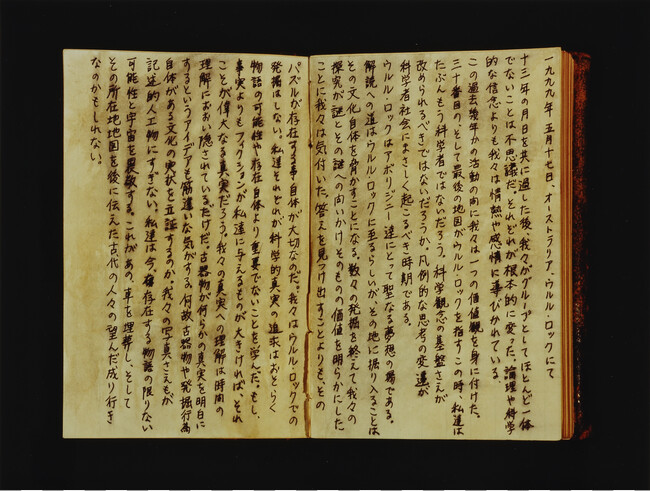 一九九九年 五月十七日、オーストラリア、ウルル・ロックにて
十三年の月日を共に過した後、我々がグループとしてほとんど一体
でないことは不思議だ。それぞれが根本的に変った。論理や科学
的な信念よりも我々は情熱や感情に導びかれている。
この過去幾年かの活動の内に我々は一つの価値観を身に付けた。
三十番目の、そして最後の地図がウルル・ロックを指すこの時、私達は
たぶんもう科学者ではないだろう。科学観念の基盤さえが
改められるべきではないだろうか。凡例的な思考の変遷が
科学者社会にまさしく起こるべき時期である。
ウルル・ロックはアボリジニー達にとって聖なる夢想の場である。
解説への道はウルル・ロックに至るらしいが、その地に掘り入ることは
その文化自体を脅かすことになる。数々の発掘を終えて我々の
探究が謎とその謎への向いかけそのものの価値を明らかにした
ことに我々は気付いた。答えを見つけ出すことよりもその
パズルが存在する事自体が大切なのだ。我々はウルル・ロックでの
発掘はしない。私達それぞれが科学的真実の追求はおそらく
物語の可能性や存在自体より重要でないことを学んだ。もし、
事実よりもフィクションが私達に与えるものが大きければ、それ
ことが偉大なる真実だろう。我々の真実への理解は時間の
理解におおい隠されているだけだ。古器物が何らかの真実を明白に
するというアイデアも筋違いな気がする。何故古器物や発掘行為
自体がある文化の実状を立証するのか。我々の写真さえもが
記述的人工物にすぎない。私達は今、存在する物語の限りない
可能性と宇宙を裏敬する。これがあの、車を埋葬し、そして
その所在地地図を後に伝えた古代の人々の望んだ成り行き
なのかもしれない。